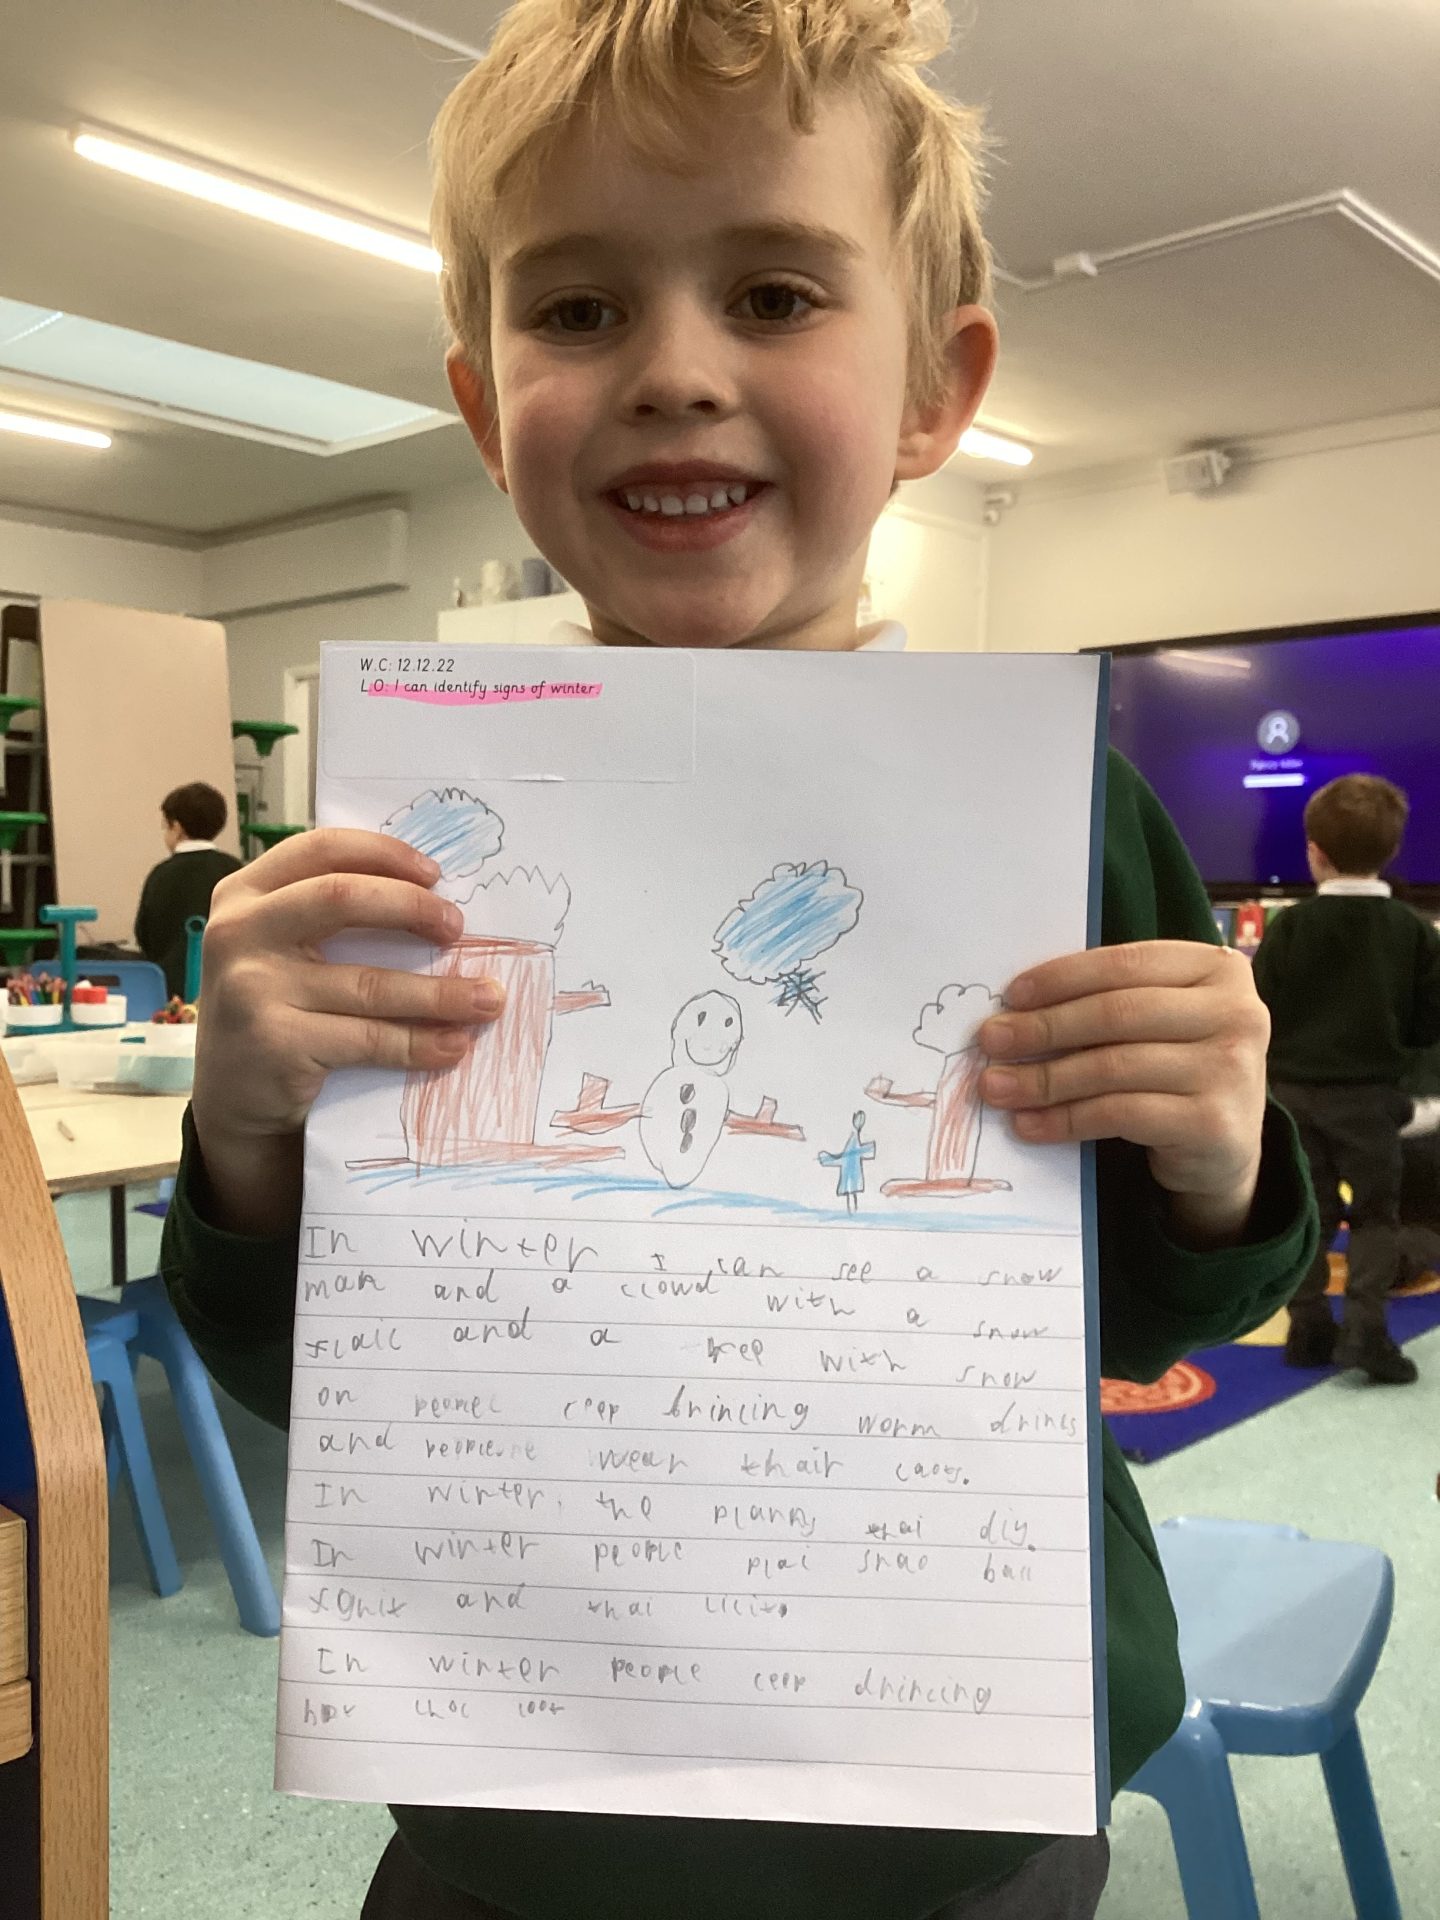 W.C: 12.12.22
L.O: I can identify signs of winter.
In winter I can see a snow
man and a clowd with a snow
flaic and a tree with snow
on peopel ceep brincing worm drincs
and peopie wear thair caots.
In winter, the plants thai diy.
In winter people plai snao ball
fghit and thai
In winter people ceep drincing
hot choc loot